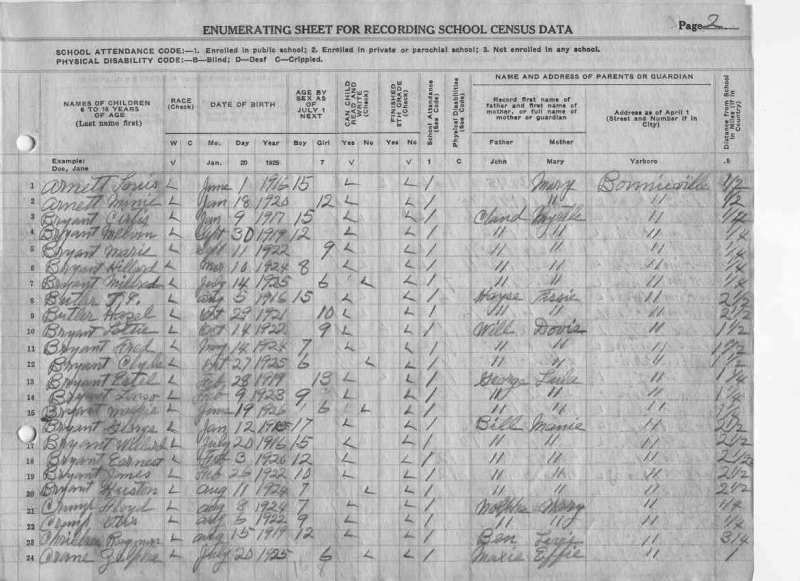 ENUMERATING SHEET FOR RECORDING SCHOOL CENSUS DATA Page 2
SCHOOL ATTENDANCE CODE:—1. Enrolled in public school; 2. Enrolled in private or parochial school; 3. Not enrolled in any school.
PHYSICAL DISABILITY CODE:—B—Blind; D—Deaf C—Crippled.
NAMES OF CHILDREN 6 TO 18 YEARS OF AGE (Last name first)
RACE (Check)
DATE OF BIRTH
AGE BY SEX AS OF JULY 1 NEXT
CAN CHILD READ AND WRITE (Check)
FINISHED 8TH GRADE (Check)
School Attendance (See Code)
Physical Disabilities (See Code)
NAME AND ADDRESS OF PARENTS OR GUARDIAN
Record first name of father and first name of mother, or full name of mother or guardian
Address as of April 1 (Street and Number if in City)
Distance from School in Miles (if in County)
W C Mo. Day Year Boy Girl Yes No Yes No Father Mother
Example: Doe, Jane V Jan. 20 1925 7 V V 1 C John Mary Yarboro .5
1 Arnett Louis L June 1 1916 15 L L 1 Mary Bonnieville 1/2
2 Arnett L Jan 18 1920 12 L L 1 " " 1/2
3 Bryant L Jan 9 1917 15 L L 1 Claud Myrtle " 1/4
4 Bryant Melvin L Sept 30 1919 12 L L 1 " " " 1/4
5 Bryant Marie L 11 1922 9 L L 1 " " " 1/4
6 Bryant Hillard L Mar 10 1924 8 L L 1 " " " 1/4
7 Bryant Mildred L July 14 1925 6 L L 1 " " " 1/4
8 Butler L Aug 5 1916 15 L L 1 " 2 1/2
9 Butler Hazel L Oct 29 1921 10 L L 1 " " " 2 1/2
10 Bryant Lottie L Oct 14 1922 9 L L 1 Will Dovie " 1 1/2
11 Bryant Fred L 14 1924 7 L L 1 " " " 1 1/2
12 Bryant Clyde L Oct 27 1925 6 L L 1 " " " 1 1/2
13 Bryant Estel L Feb 28 1919 13 L L 1 George Lula " 1 1/4
14 Bryant L Feb 9 1923 9 L L 1 " " " 1 1/4
15 Bryant L June 19 1926 6 L L 1 " " "
Bryant George L Jan 12 1915 17 L L 1 Bill Mamie " 2 1/2
17 Bryant Willard L July 20 1916 15 L L 1 " " " 2 1/2
18 Bryant Earnest L Feb 3 1920 12 L L 1 " " " 2 1/2
19 Bryant James L Feb 26 1922 10 L L 1 " " " 2 1/2
20 Bryant Huston L Aug 11 1924 7 L L 1 " " " 2 1/2
21 Crump Floyd L Aug 8 1924 7 L L 1 Mary " 1/4
22 Crump L Aug 6 1922 9 L L 1 " " " 1/4
23 L Aug 15 1919 12 L L 1 Ben " 3/4
24 Crane L July 20 1925 6 L L 1 Effie " 1